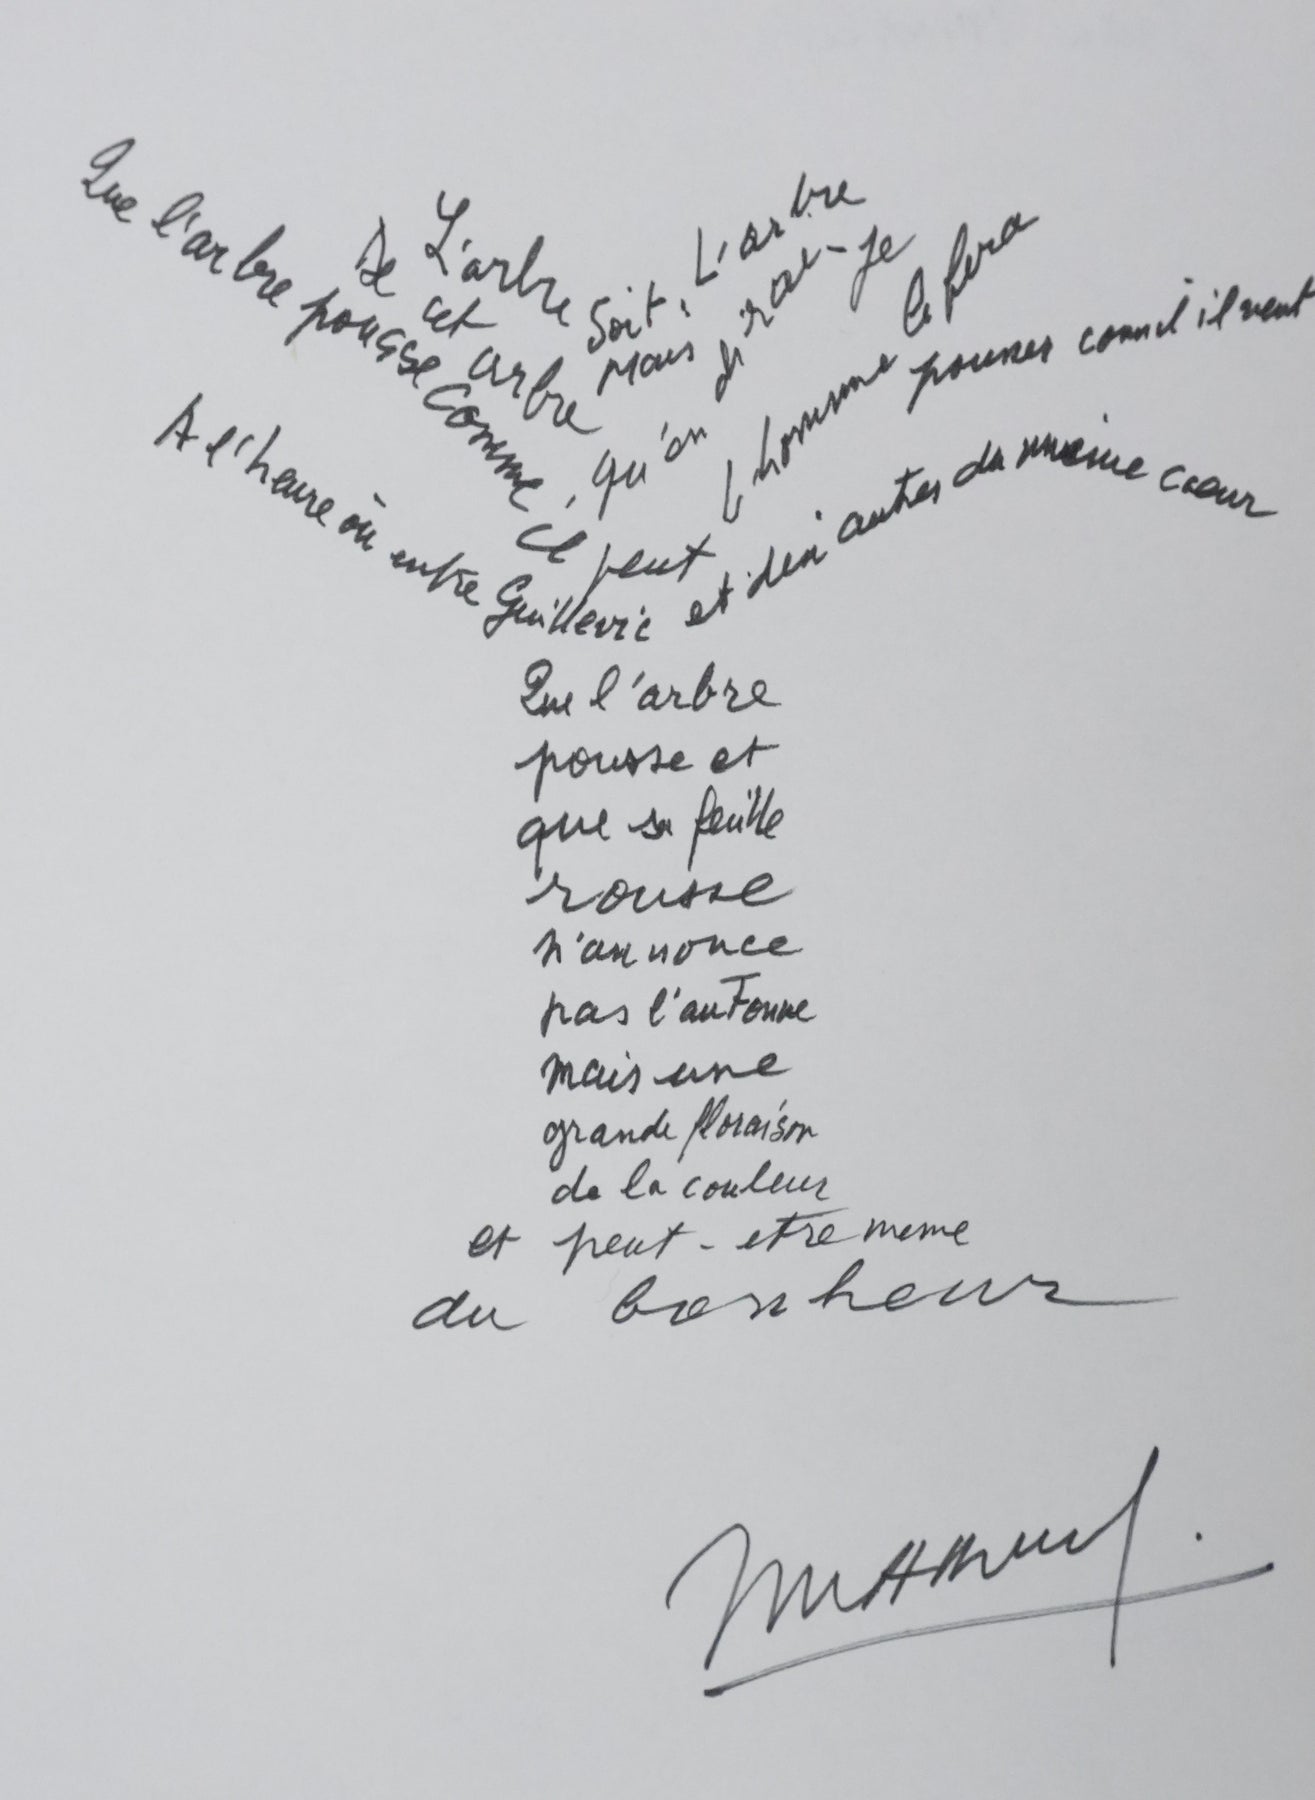 L'arbre soit, L'arbre
De cet arbre Mais qu'en dirai-je
Que l'arbre pousse comme il peut l'homme le fera
pousser comme il veut
A l'heure où entre Guillevic et deux autres du même cœur
Que l'arbre
pousse et
que sa feuille
rousse
n'annonce
pas l'automne
mais une
grande floraison
de la couleur
et peut-etre meme
du bonheur